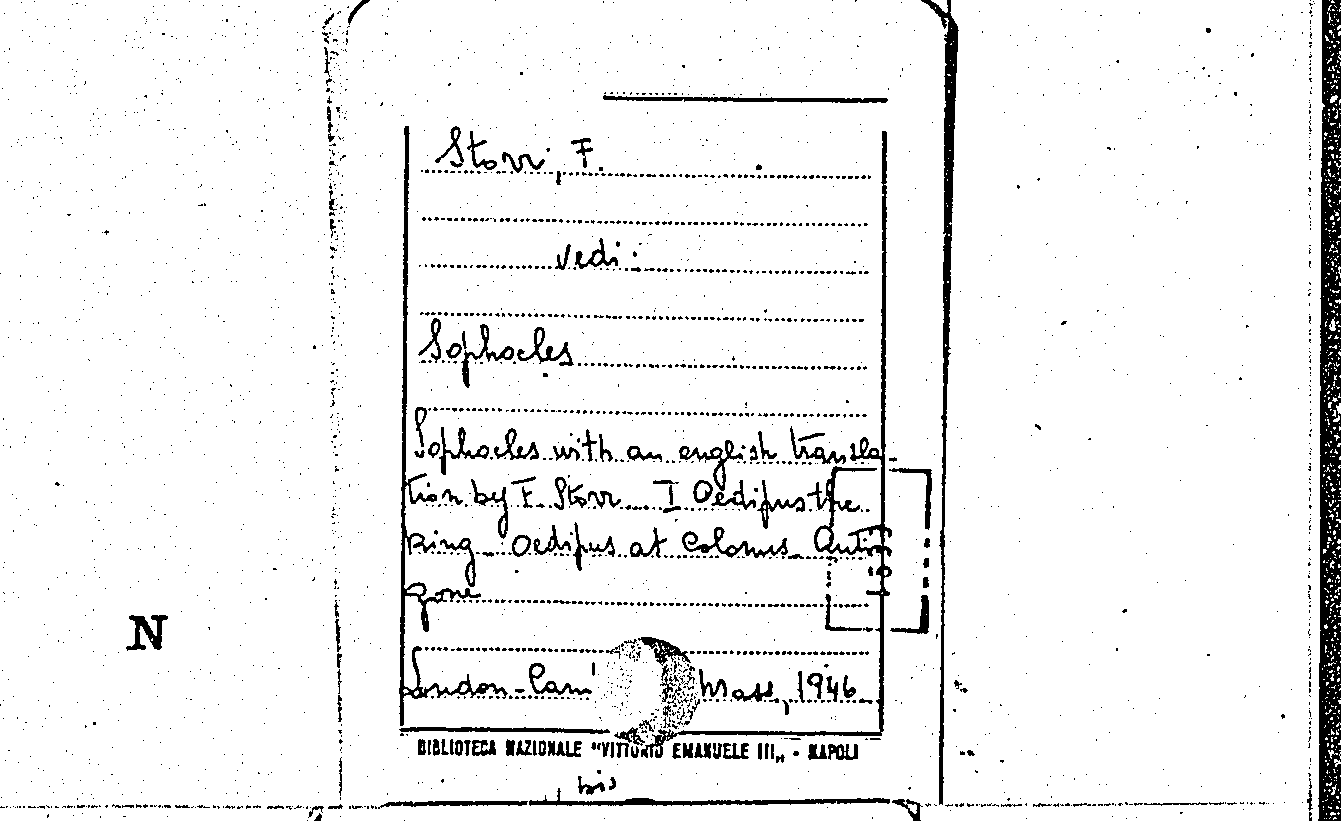 Storr, F.
vedi:
Sophocles
Sophocles with an english transla-
tion by F. Storr. I Oedipus the
king. Oedipus at Colonus. Anti
gone
London-Cam Mass, 1946
N
BIBLIOTECA NAZIONALE "VITTORIO EMANUELE III„ - NAPOLI
bis